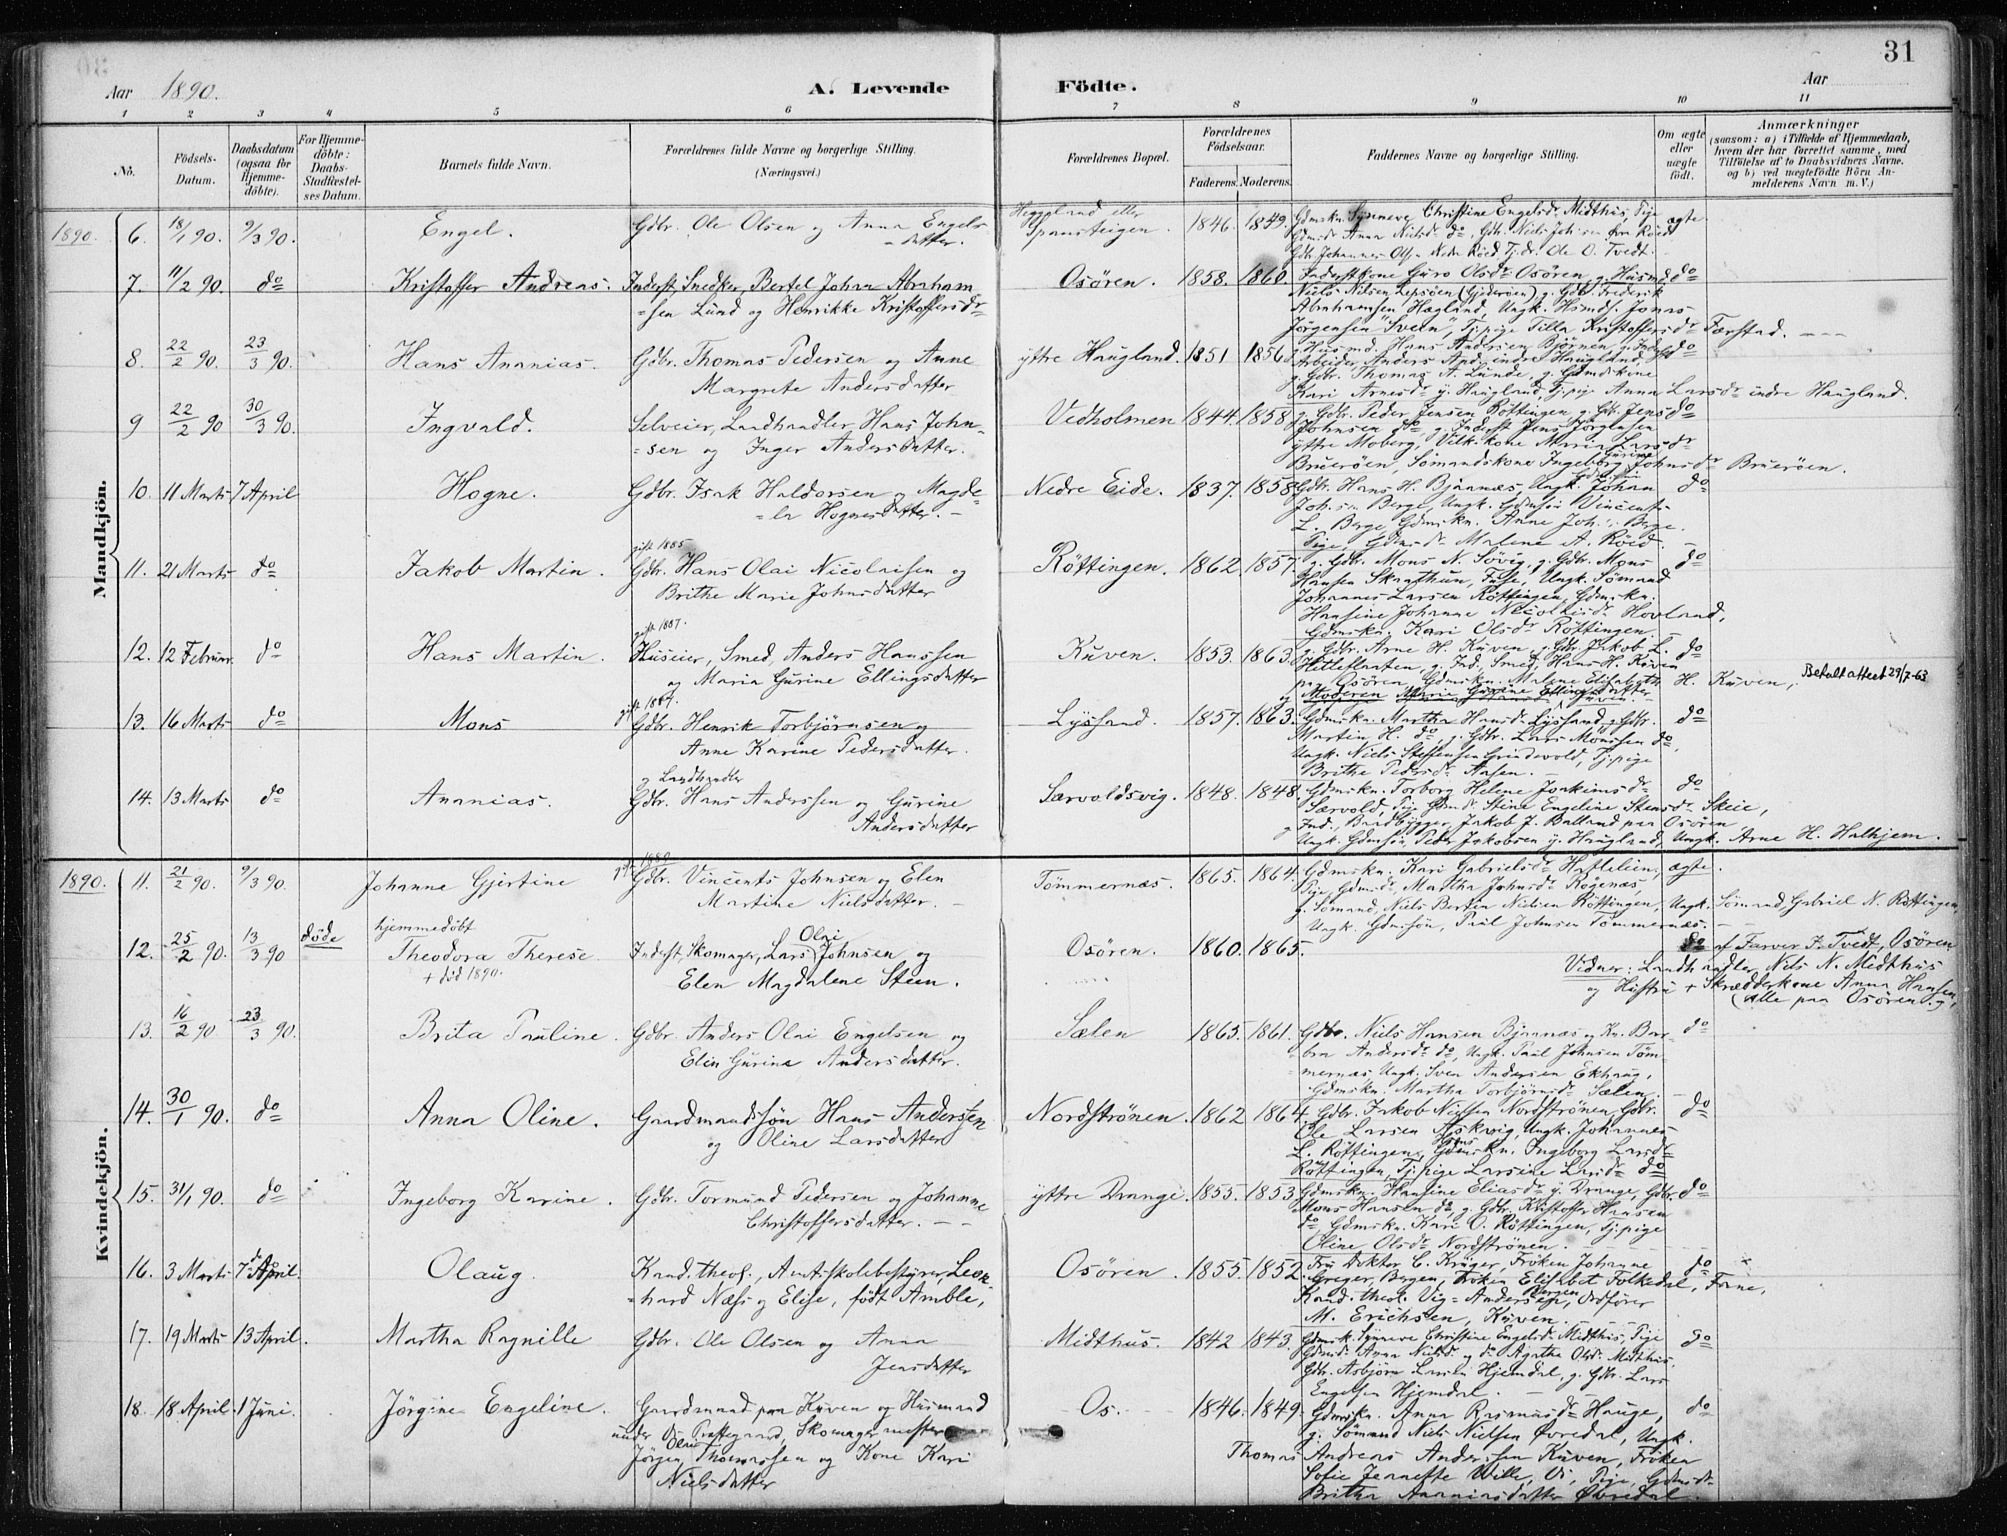 31
Aar 1890. A. Levende Födte. Aar
1 2 3 4 5 6 7 8 9 10 11
No. Födsels-Datum. Daabsdatum (ogsaa for Hjemme-döbte). For Hjemme-döbte: Daabs-Stadfæstel-ses Datum. Barnets fulde Navn. Forældrenes fulde Navne og borgerlige Stilling. (Næringsvei.) Forældrenes Bopæl. Forældrenes Födselsaar. Faderens. Moderens. Faddernes Navne og borgerlige Stilling. Om ægte eller uægte födt. Anmærkninger (saasom: a) i Tilfælde af Hjemmedaab, hvem der har forrettet samme, med Tilföielse af to Daabsvidners Navne. og b) ved uægtefödte Börn An-melderens Navn m. V.)
Mandkjön.
1890. 6. 18/1 90. 9/3 90. Engel. Gdbr. Ole Olsen og Anna Engels-
datter. Heggeland eller Spansteigen. 1846. 1849. Gdmskn. Synneve Christine Engelsdr Midthus, Pige
Gdmsdr Anna Nielsdr do, Gdbr. Niels Joh.sen Øvre Röed ægte
Gdbr. Johannes Ols.n Nedre Röed. Tj.dr. Ole O. Tvedt.
7. 11/2 90. do Kristoffer Andreas. Inderst, Snedker, Bertel Johan Abraham-
sen Lund og Henrikke Kristoffersdr Osören. 1858. 1860. Inderstkone Guro Olsdr Osören, g. Husmd do
Niels Nilsen Lepsöen (Gjderöen), g. Gdbr. Frederik
Abrahamsen Hægland, Ungk. Hsmds. Jonas
Jörgensen Svein, Tj.pige Tilla Kristoffersdr Færstad.
8. 22/2 90. 23/3 90. Hans Ananias. Gdbr. Thomas Pedersen og Anne
Margrete Andersdatter ytre Haugland. 1851 1856 g. Husmd. Hans Andersen Björnen, g. Inderst do
Arbeider Anders And. indre Haugland
g. Gdbr. Thomas A. Lunde, g. Gdmdskone
Kari Arnesdr y. Haugland, Tj.pige Anna Larsdr indre Haugland.
9 22/2 90 30/3 90. Ingvald. Selveier, Landhandler, Hans John-
sen og Inger Andersdatter. Vedholmen 1844. 1858 g. Gdbr. Peder Jensen Röttingen g. Gdbr. Jens do
Johnsen do g. Inderst Jens Jörgensen
ytre Moberg, Vilk. kone Maria Larsdr
Brueröen, Sömandskone Ingeborg Gurine Johnsdr Brueröen.
10. 11 Marts 7 April Hogne. Gdbr. Isak Haldorsen og Magde-
le Hognesdatter. Nedre Eide. 1837. 1858 Gdbr. Hans H. Bjånæs, Ungk. Gdmsön Johan do
Joh.sen Berge, Ungk. Gdmsön Vincents
L. Berge, Gdmskn. Anne Joh. Berge.
Pige, Gdmsdr Malene A. Röed.
11. 21 Marts do Jakob Martin. gift 1885
Gdbr. Hans Olai Nicolaisen og
Brithe Marie Johnsdatter Röttingen. 1862. 1857. g. Gdbr. Mons N. Sövig, g. Gdbr. Mons do
Hansen Skrathun, Fuse, Ungk. Sömand
Johannes Larsen Röttingen, Gdmskn.
Hansine Johanne Nicolaisdr Hovland,
Gdmskn. Kari Olsdr Röttingen.
12. 12 Februar. do Hans Martin. gift 1887.
Huseier, Smed, Anders Hanssen
og Maria Gurine Ellingsdatter Kuven. 1853. 1863. g. Gdbr. Arne H. Kuven, g. Gdbr Jakob L. do
Hetleflaaten, g. Ind. Smed, Hans H. Kuven
paa Osören, Gdmskn. Malene Elisabeth H. Kuven, Betalt attest 29/7-63
og Moderen Marie Gurine Ellingsdatter
13. 16 Marts do Mons gift 1889.
Gdbr. Henrik Torbjörnsen og
Anne Karine Pedersdatter. Lysfand. 1857. 1863. Gdmskn. Martha Hansdr Lysfand, g. Gdbr. do
Martin H. do, g. Gdbr. Lars Monssen do,
Ungk. Niels Steffensen Grindevold, Tj.pige
Brithe Pedersdr Aasen.
14. 13 Marts do Ananias. og Landhandler
Gdbr. Hans Anderssen og Gurine
Andersdatter Særvoldsvig. 1848. 1848. Gdmskn. Torborg Helene Joakimsdr do
Særvold, Pige Gdmsdr Stine Engeline Stensdr Skeie,
g Ind., Baadbygger, Jakob J. Balland paa Osören
Ungk. Gdmsön Peder Jakobsen y. Haugland, Ungk. Arne H. Halhjem.
Kvindekjön.
1890. 11. 21/2 90. 9/3 90. Johanne Gjertine gift 1889
Gdbr. Vincents Johnsen og Elen
Martine Nielsdatter. Tömmernæs. 1865. 1864. Gdmskn. Kari Gabrielsdr Hatlelien, ægte.
Pige, Gdmsdr, Martha Johnsdr Rögenæs,
g. Sömand, Niels Bertin Nielsen Röttingen, Ungk. Sömand Gabriel N. Röttingen,
Ungk. Gdmssön, Paul Johnsen Tömmernæs.
12. 25/2 90. 13/3 90 döde hjemmedöbt
Theodora Therese
+ död 1890. Inderst, Skomager, Lars Olai Johnsen og
Elen Magdalene Steen. Osören. 1860. 1865. do af Farver F. Tvedt, Osören
Vidner: Landhandler Nils N. Midthus
og Hustru + Skrædderkone Anna Hansen,
(Alle paa Osören.)
13. 16/2 90 23/3 90. Brita Pauline. Gdbr. Anders Olai Engelsen og
Elen Gurine Andersdatter. Sælen 1865. 1861. Gdbr. Niels Hansen Bjaanæs og Kn. Bar- do
bra Andersdr do, Ungk. Paul Johnsen Töm-
mernæs, Ungk. Sven Andersen Ekhaug,
Gdmskn. Martha Torbjörnsdr Sælen.
14. 30/1 90. do Anna Oline. Gaardmandssön Hans Andersen
og Oline Larsdatter Nordströnen. 1862 1864. Gdbr. Jakob Nielsen Nordströnen, Gdbr. do
Ole Larsen Askvig, Ungk. Johannes
L. Röttingen, Gdmskn. Ingeborg Larsdr
Röttingen, Tj.pige Larsine Larsdr do
15. 31/1 90. do Ingeborg Karine. Gdbr. Tormund Pedersen og Johanne
Christoffersdatter. ytre Drange. 1855. 1853 Gdmskn. Hansine Eliasdr y. Drange, Gdbr. do
Mons Hansen do, g. Gdbr. Kristoffer Hansen
do, Gdmskn. Kari O. Röttingen, Tj.pige
Oline Olsdr Nordströnen.
16. 3 Marts 7de April. Olaug. Kand. theol., Amtsskolebestyrer, Leon-
hard Næss og Elise, födt Amble, Osören. 1855. 1852. Fru Doktor C. Krüger, Fröken Johanne do
Greger, Bergen, Fröken Elisabet Folkedal, Fane,
Kand. theol. Vig-Andersen, Bergen Ordförer
M. Erichsen, Kuven.
17. 19 Marts 13 April. Martha Ragnille Gdbr. Ole Olsen og Anna
Jensdatter Midthus. 1842 1843. Gdmsk. Synneve Christine Engelsdr. Midthus, Pige do
Gdmsdr Anna Nielsdr og do Agathe Olsdr Midthus.
Gdbr. Asbjörn Larsen Hjemdal, g. Gdbr. Lars
Engelsen Hjemdal.
18. 18 April. 1 Juni. Jörgine Engeline. Gaardmand paa Kuven og Husmand
under Os Præstegaard, Skomagermester
Jörgen Olai Thomassen og Kone Kari
Nielsdatter Os. 1846. 1849. Gdmskn. Anna Rasmusdr Hauge, do
g. Sömand Niels Nielsen Øvredal, Ungk.
Thomas Andreas Anderssen Kuven, Fröken
Sofie Jeanette Wille, Os, Pige, Gdmsdr
Britha Ananiasdatter Øvredal.